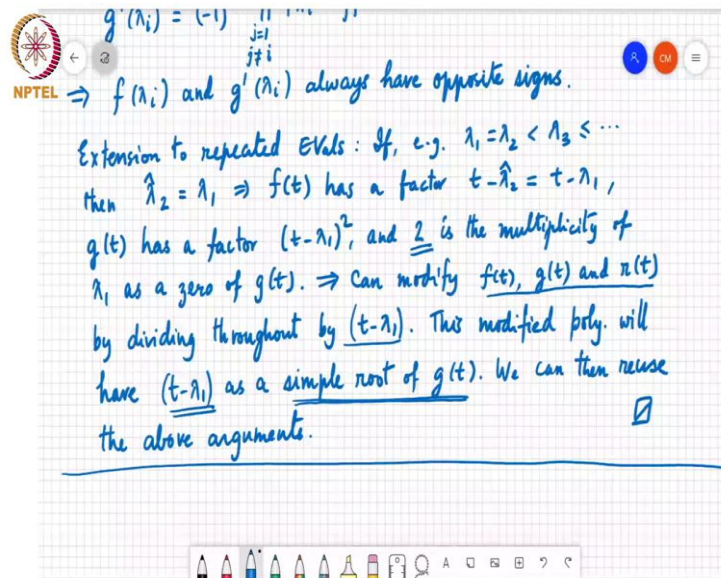 g'(λi) = (-1)
j=1
j≠i
⇒ f(λi) and g'(λi) always have opposite signs.
Extension to repeated EVals : If, e.g. λ1 = λ2 < λ3 ≤ ⋯
then λ̂2 = λ1 ⇒ f(t) has a factor t-λ̂2 = t-λ1,
g(t) has a factor (t-λ1)², and 2 is the multiplicity of
λ1 as a zero of g(t). ⇒ Can modify f(t), g(t) and r(t)
by dividing throughout by (t-λ1). This modified poly. will
have (t-λ1) as a simple root of g(t). We can then reuse
the above arguments.
NPTEL
CM
A